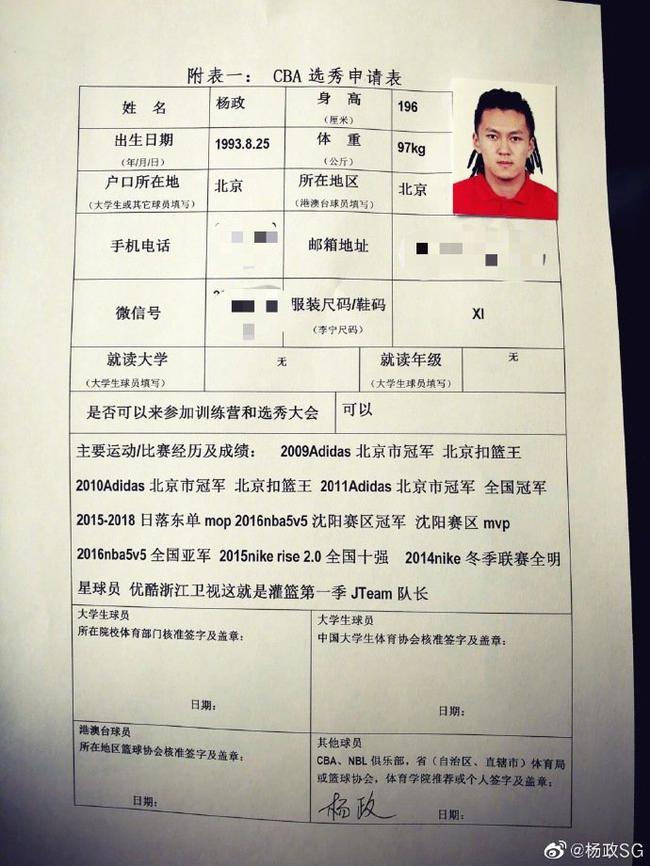 附表一： CBA 选秀申请表
姓 名 杨政 身 高 196
（厘米）
出生日期 1993.8.25 体 重 97kg
（年/月/日） （公斤）
户口所在地 北京 所在地区 北京
（大学生或其它球员填写） （港澳台球员填写）
手机电话 邮箱地址
微信号 服装尺码/鞋码 Xl
（李宁尺码）
就读大学 无 就读年级 无
（大学生球员填写） （大学生球员填写）
是否可以来参加训练营和选秀大会 可以
主要运动/比赛经历及成绩： 2009Adidas 北京市冠军 北京扣篮王
2010Adidas 北京市冠军 北京扣篮王 2011Adidas 北京市冠军 全国冠军
2015-2018 日落东单 mop 2016nba5v5 沈阳赛区冠军 沈阳赛区 mvp
2016nba5v5 全国亚军 2015nike rise 2.0 全国十强 2014nike 冬季联赛全明
星球员 优酷浙江卫视这就是灌篮第一季 JTeam 队长
大学生球员
所在院校体育部门核准签字及盖章：
日期：
大学生球员
中国大学生体育协会核准签字及盖章：
日期：
港澳台球员
所在地区篮球协会核准签字及盖章：
日期：
其他球员
CBA、NBL 俱乐部，省（自治区、直辖市）体育局
或篮球协会，体育学院推荐或个人签字及盖章：
杨政 日期：
@杨政SG